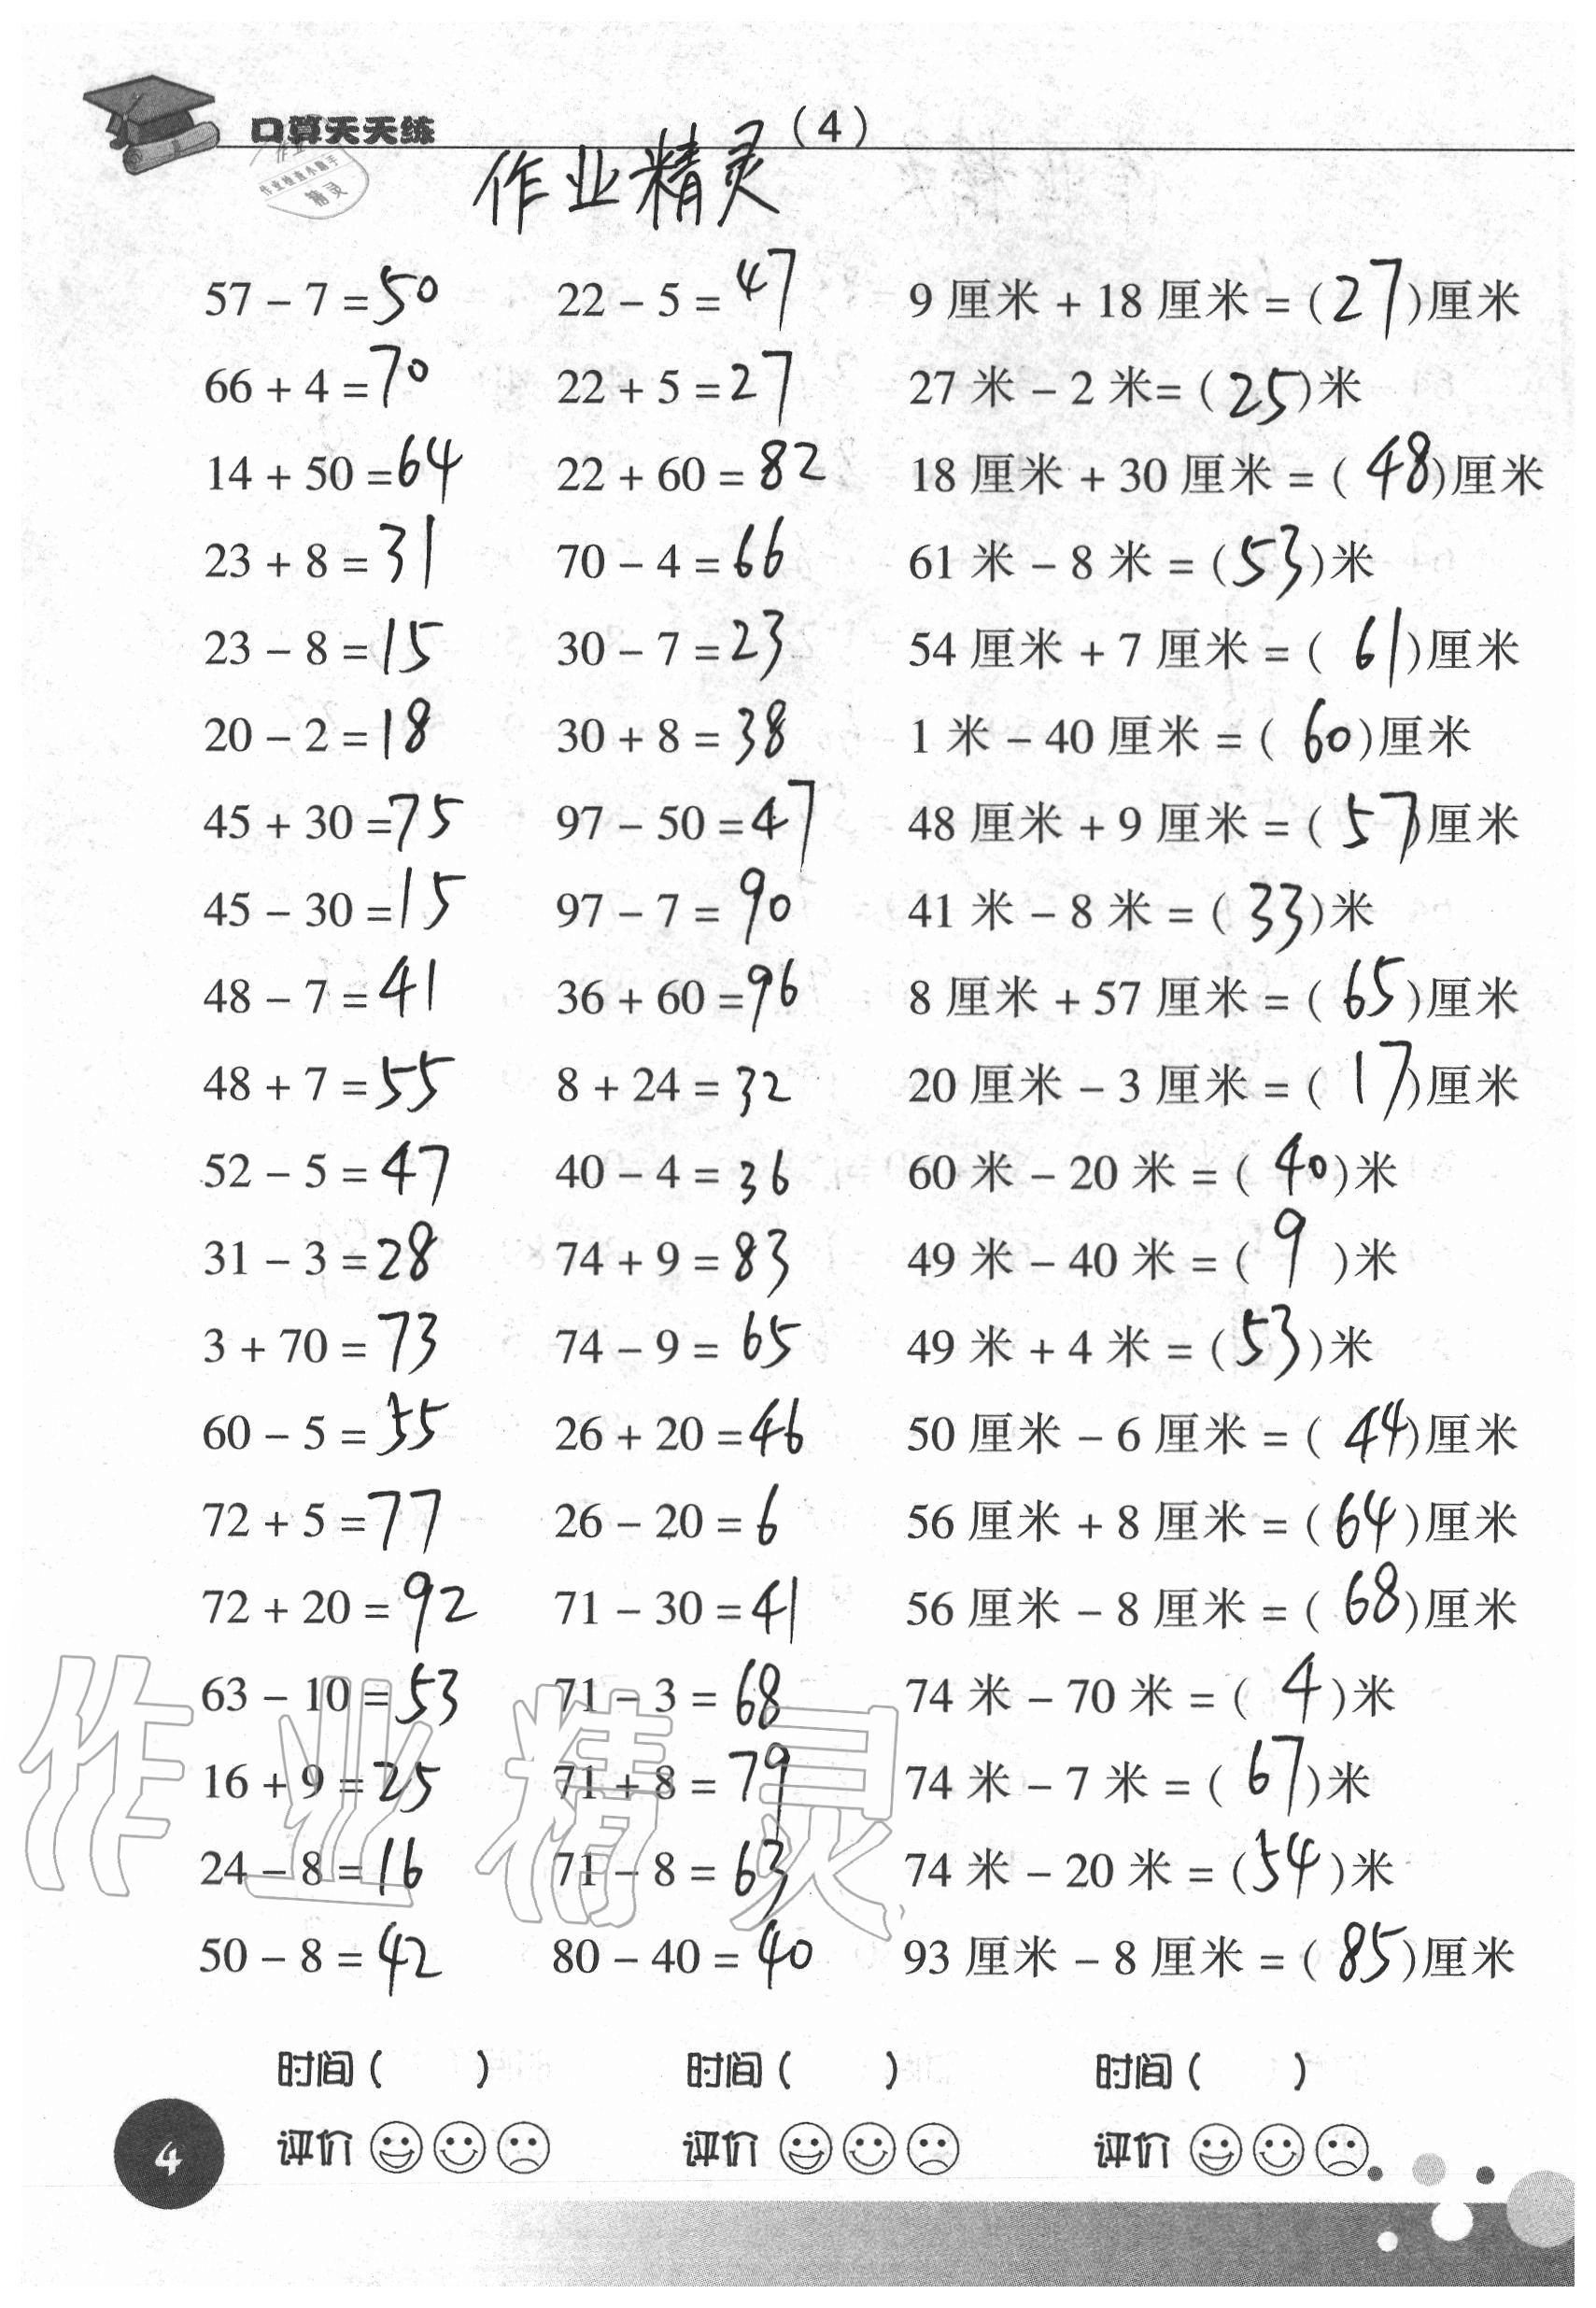 口算天天练
(4)
作业检查小助手
精灵
作业精灵
57 - 7 = 50 22 - 5 = 47 9 厘米 + 18 厘米 = (27)厘米
66 + 4 = 70 22 + 5 = 27 27 米 - 2 米= (25)米
14 + 50 = 64 22 + 60 = 82 18 厘米 + 30 厘米 = (48)厘米
23 + 8 = 31 70 - 4 = 66 61 米 - 8 米 = (53)米
23 - 8 = 15 30 - 7 = 23 54 厘米 + 7 厘米 = (61)厘米
20 - 2 = 18 30 + 8 = 38 1 米 - 40 厘米 = (60)厘米
45 + 30 = 75 97 - 50 = 47 48 厘米 + 9 厘米 = (57)厘米
45 - 30 = 15 97 - 7 = 90 41 米 - 8 米 = (33)米
48 - 7 = 41 36 + 60 = 96 8 厘米 + 57 厘米 = (65)厘米
48 + 7 = 55 8 + 24 = 32 20 厘米 - 3 厘米 = (17)厘米
52 - 5 = 47 40 - 4 = 36 60 米 - 20 米 = (40)米
31 - 3 = 28 74 + 9 = 83 49 米 - 40 米 = (9)米
3 + 70 = 73 74 - 9 = 65 49 米 + 4 米 = (53)米
60 - 5 = 55 26 + 20 = 46 50 厘米 - 6 厘米 = (44)厘米
72 + 5 = 77 26 - 20 = 6 56 厘米 + 8 厘米 = (64)厘米
72 + 20 = 92 71 - 30 = 41 56 厘米 - 8 厘米 = (68)厘米
63 - 10 = 53 71 - 3 = 68 74 米 - 70 米 = (4)米
16 + 9 = 25 71 + 8 = 79 74 米 - 7 米 = (67)米
24 - 8 = 16 71 - 8 = 63 74 米 - 20 米 = (54)米
50 - 8 = 42 80 - 40 = 40 93 厘米 - 8 厘米 = (85)厘米
作业精灵
时间( ) 时间( ) 时间( )
评价 评价 评价
4